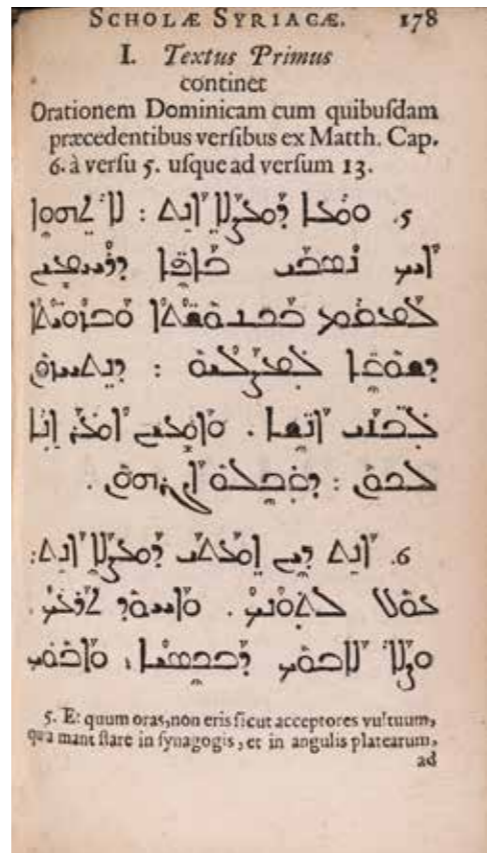 SCHOLÆ SYRIACÆ. 178
I. Textus Primus
continet
Orationem Dominicam cum quibusdam
præcedentibus versibus ex Matth. Cap.
6. à versu 5. usque ad versum 13.
5. ܘܡܐ ܕܡܨܠܐ ܐܢܬ : ܠܐ ܬܗܘܐ
ܐܝܟ ܢܣܒܝ ܒܐܦܐ ܕܪܚܡܝܢ
ܠܡܩܡ ܒܟܢܘܫܬܐ ܘܒܙܘܝܬܐ
ܕܫܘܩܐ ܠܡܨܠܝܘ : ܕܢܬܚܙܘܢ
ܠܒܢܝ ܐܢܫܐ . ܘܐܡܝܢ ܐܡܪ ܐܢܐ
ܠܟܘܢ : ܕܩܒܠܘ ܐܓܪܗܘܢ .
6. ܐܢܬ ܕܝܢ ܐܡܬܝ ܕܡܨܠܐ ܐܢܬ :
ܥܘܠ ܠܬܘܢܟ . ܘܐܚܘܕ ܬܪܥܟ .
ܘܨܠܐ ܠܐܒܘܟ ܕܒܟܣܝܐ . ܘܐܒܘܟ
5. Et quum oras, non eris sicut acceptores vultuum,
qui amant stare in synagogis, et in angulis platearum,
ad